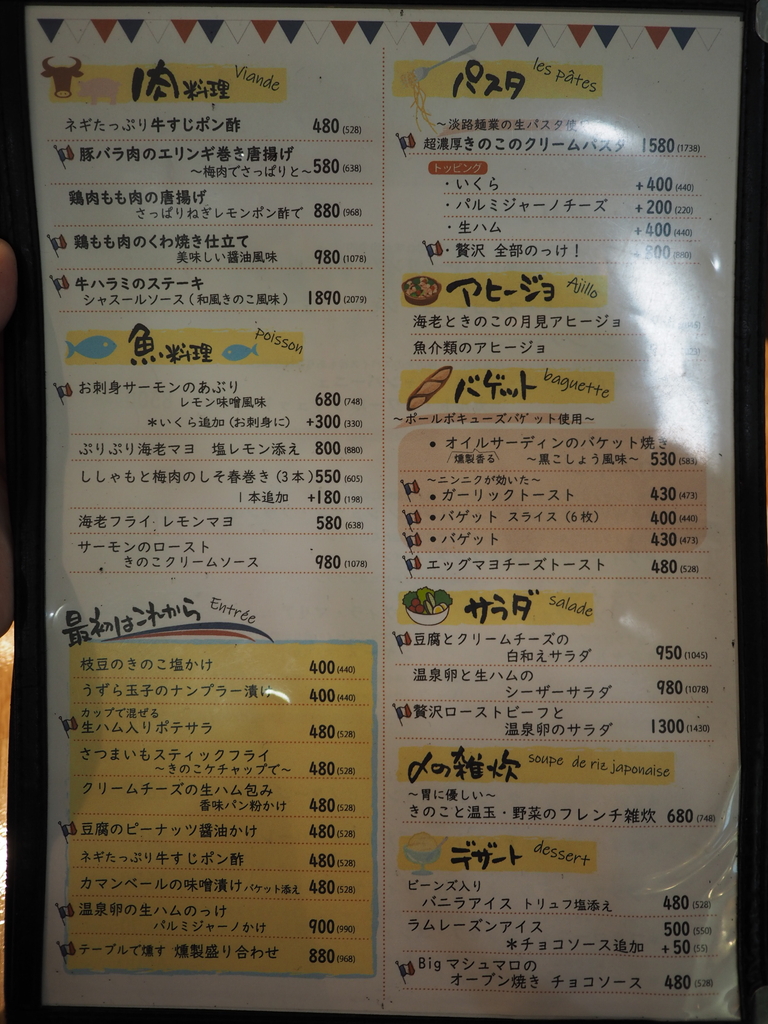 肉料理 Viande
ネギたっぷり牛すじポン酢 480(528)
豚バラ肉のエリンギ巻き唐揚げ
～梅肉でさっぱりと～580(638)
鶏肉もも肉の唐揚げ
さっぱりねぎレモンポン酢で 880(968)
鶏もも肉のくわ焼き仕立て
美味しい醤油風味 980(1078)
牛ハラミのステーキ
シャスールソース(和風きのこ風味) 1890(2079)
魚料理 poisson
お刺身サーモンのあぶり
レモン味噌風味 680(748)
＊いくら追加(お刺身に) +300(330)
ぷりぷり海老マヨ 塩レモン添え 800(880)
ししゃもと梅肉のしそ春巻き(3本)550(605)
1本追加 +180(198)
海老フライ レモンマヨ 580(638)
サーモンのロースト
きのこクリームソース 980(1078)
最初はこれから Entrée
枝豆のきのこ塩かけ 400(440)
うずら玉子のナンプラー漬け 400(440)
カップで混ぜる
生ハム入りポテサラ 480(528)
さつまいもスティックフライ
～きのこケチャップで～ 480(528)
クリームチーズの生ハム包み
香味パン粉かけ 480(528)
豆腐のピーナッツ醤油かけ 480(528)
ネギたっぷり牛すじポン酢 480(528)
カマンベールの味噌漬けバゲット添え 480(528)
温泉卵の生ハムのっけ
パルミジャーノかけ 900(990)
テーブルで燻す 燻製盛り合わせ 880(968)
パスタ les pâtes
～淡路麺業の生パスタ使
超濃厚きのこのクリームパスタ 1580(1738)
トッピング
・いくら +400(440)
・パルミジャーノチーズ +200(220)
・生ハム +400(440)
・贅沢 全部のっけ! +800(880)
アヒージョ Ajillo
海老ときのこの月見アヒージョ
魚介類のアヒージョ
バゲット baguette
～ポールボキューズバゲット使用～
●オイルサーディンのバケット焼き
燻製香る ～黒こしょう風味～ 530(583)
～ニンニクが効いた～
●ガーリックトースト 430(473)
●バゲット スライス(6枚) 400(440)
●バゲット 430(473)
エッグマヨチーズトースト 480(528)
サラダ salade
豆腐とクリームチーズの
白和えサラダ 950(1045)
温泉卵と生ハムの
シーザーサラダ 980(1078)
贅沢ローストビーフと
温泉卵のサラダ 1300(1430)
〆の雑炊 soupe de riz japonaise
～胃に優しい～
きのこと温玉・野菜のフレンチ雑炊 680(748)
デザート dessert
ビーンズ入り
バニラアイス トリュフ塩添え 480(528)
ラムレーズンアイス 500(550)
＊チョコソース追加 +50(55)
Bigマシュマロの
オーブン焼き チョコソース 480(528)